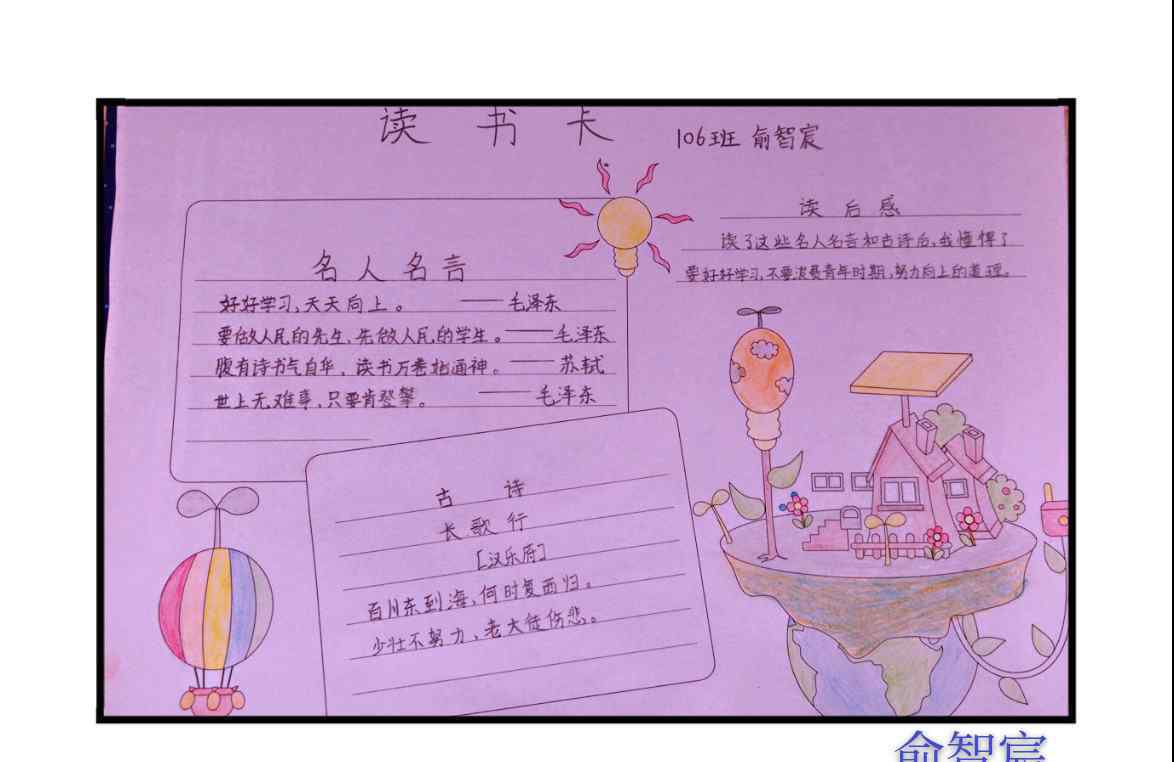 读书卡
106班 俞智宸
名人名言
好好学习,天天向上。 ——毛泽东
要做人民的先生,先做人民的学生。——毛泽东
腹有诗书气自华,读书万卷始通神。——苏轼
世上无难事,只要肯登攀。 ——毛泽东
读后感
读了这些名人名言和古诗后,我懂得了
要好好学习,不要浪费青年时期,努力向上的道理。
古 诗
长歌行
[汉乐府]
百川东到海,何时复西归。
少壮不努力,老大徒伤悲。
俞智宸